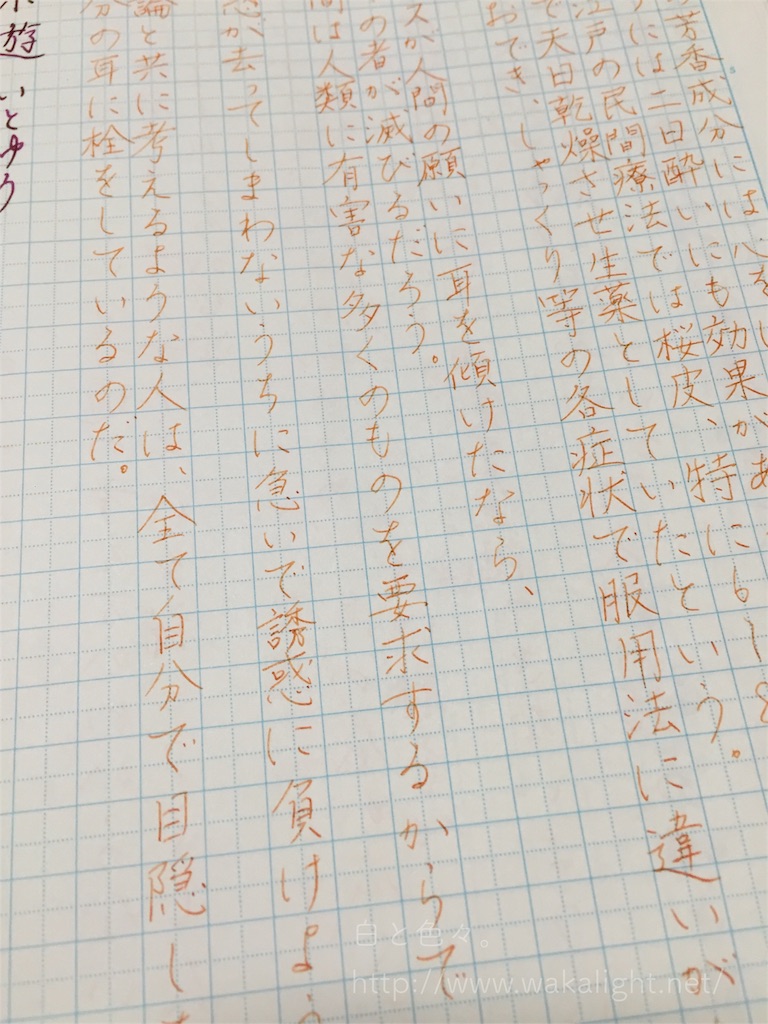 芳香成分には心を
には二日酔いにも効果があ
江戸の民間療法では桜皮、特に
で天日乾燥させ生薬としていたという。
おでき、しゃっくり等の各症状で服用法に違いが
スが人間の願いに耳を傾けたなら、
の者が滅びるだろう。
間は人類に有害な多くのものを要求するからで
惑が去ってしまわないうちに急いで誘惑に負けよう
論と共に考えるような人は、全て自分で目隠し
分の耳に栓をしているのだ。
遊 いとゆう
白と色々。
http://www.wakalight.net/